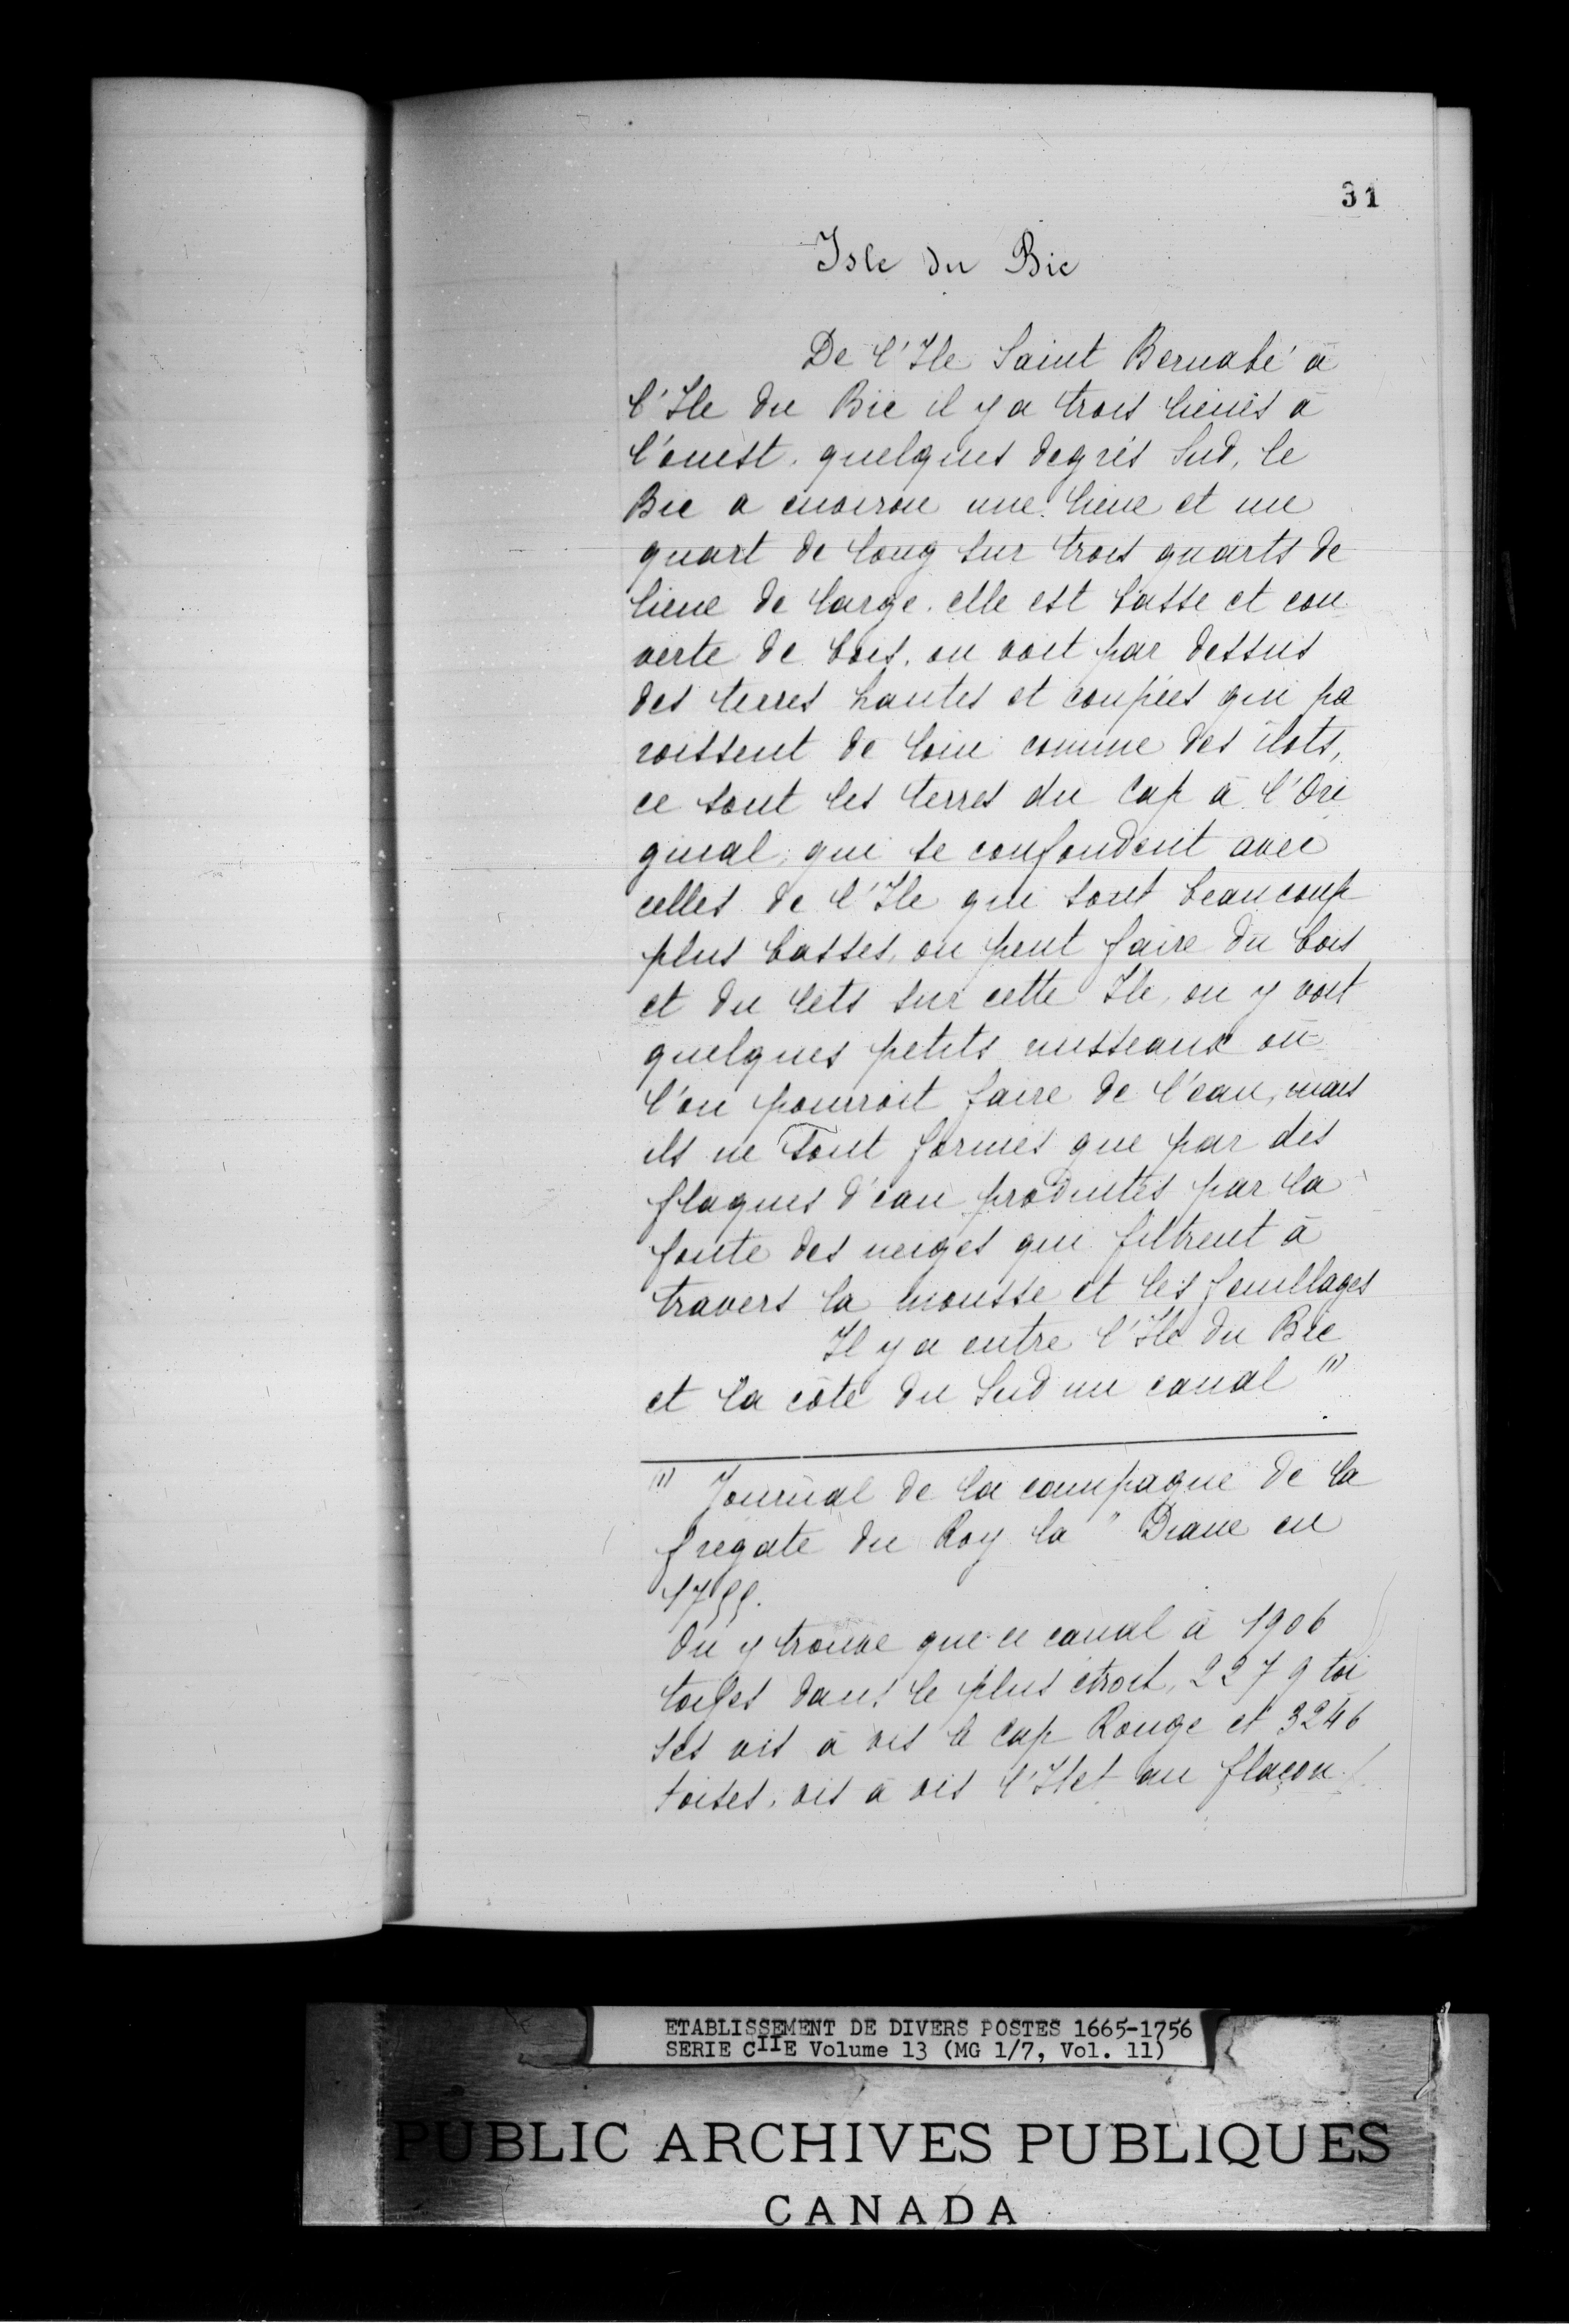 31
Isle du Bic
De l'Ile Saint Bernabé à
l'Ile du Bic il y a trois lieues à
l'ouest. quelques degrés Sud, le
Bic a environ une lieue et un
quart de long sur trois quarts de
lieue de large. elle est basse et cou
verte de bois. on voit par dessus
des terres hautes et coupées qui pa
roissent de loin comme des ilots,
ce sont les terres du Cap à l'Ori
ginal, qui se confondent avec
celles de l'Ile qui sont beaucoup
plus basses, on peut faire du bois
et du lets sur cette Ile, on y voit
quelques petits ruisseaux où
l'on pourroit faire de l'eau, mais
ils ne sont formés que par des
flaques d'eau produites par la
fonte des neiges qui filtrent à
travers la mousse et les feuillages
Il y a entre l'Ile du Bic
et la côte du Sud un canal (1)
(1) Journal de la campagne de la
fregate du Roy la "Diane en
1755.
On y trouve que ce canal à 1906
toises dans le plus étroit, 2279 toi
ses vis à vis le Cap Rouge et 3246
toises, vis à vis l'Ilet au flacon.
ETABLISSEMENT DE DIVERS POSTES 1665-1756
SERIE CIIE Volume 13 (MG 1/7, Vol. 11)
PUBLIC ARCHIVES PUBLIQUES
CANADA